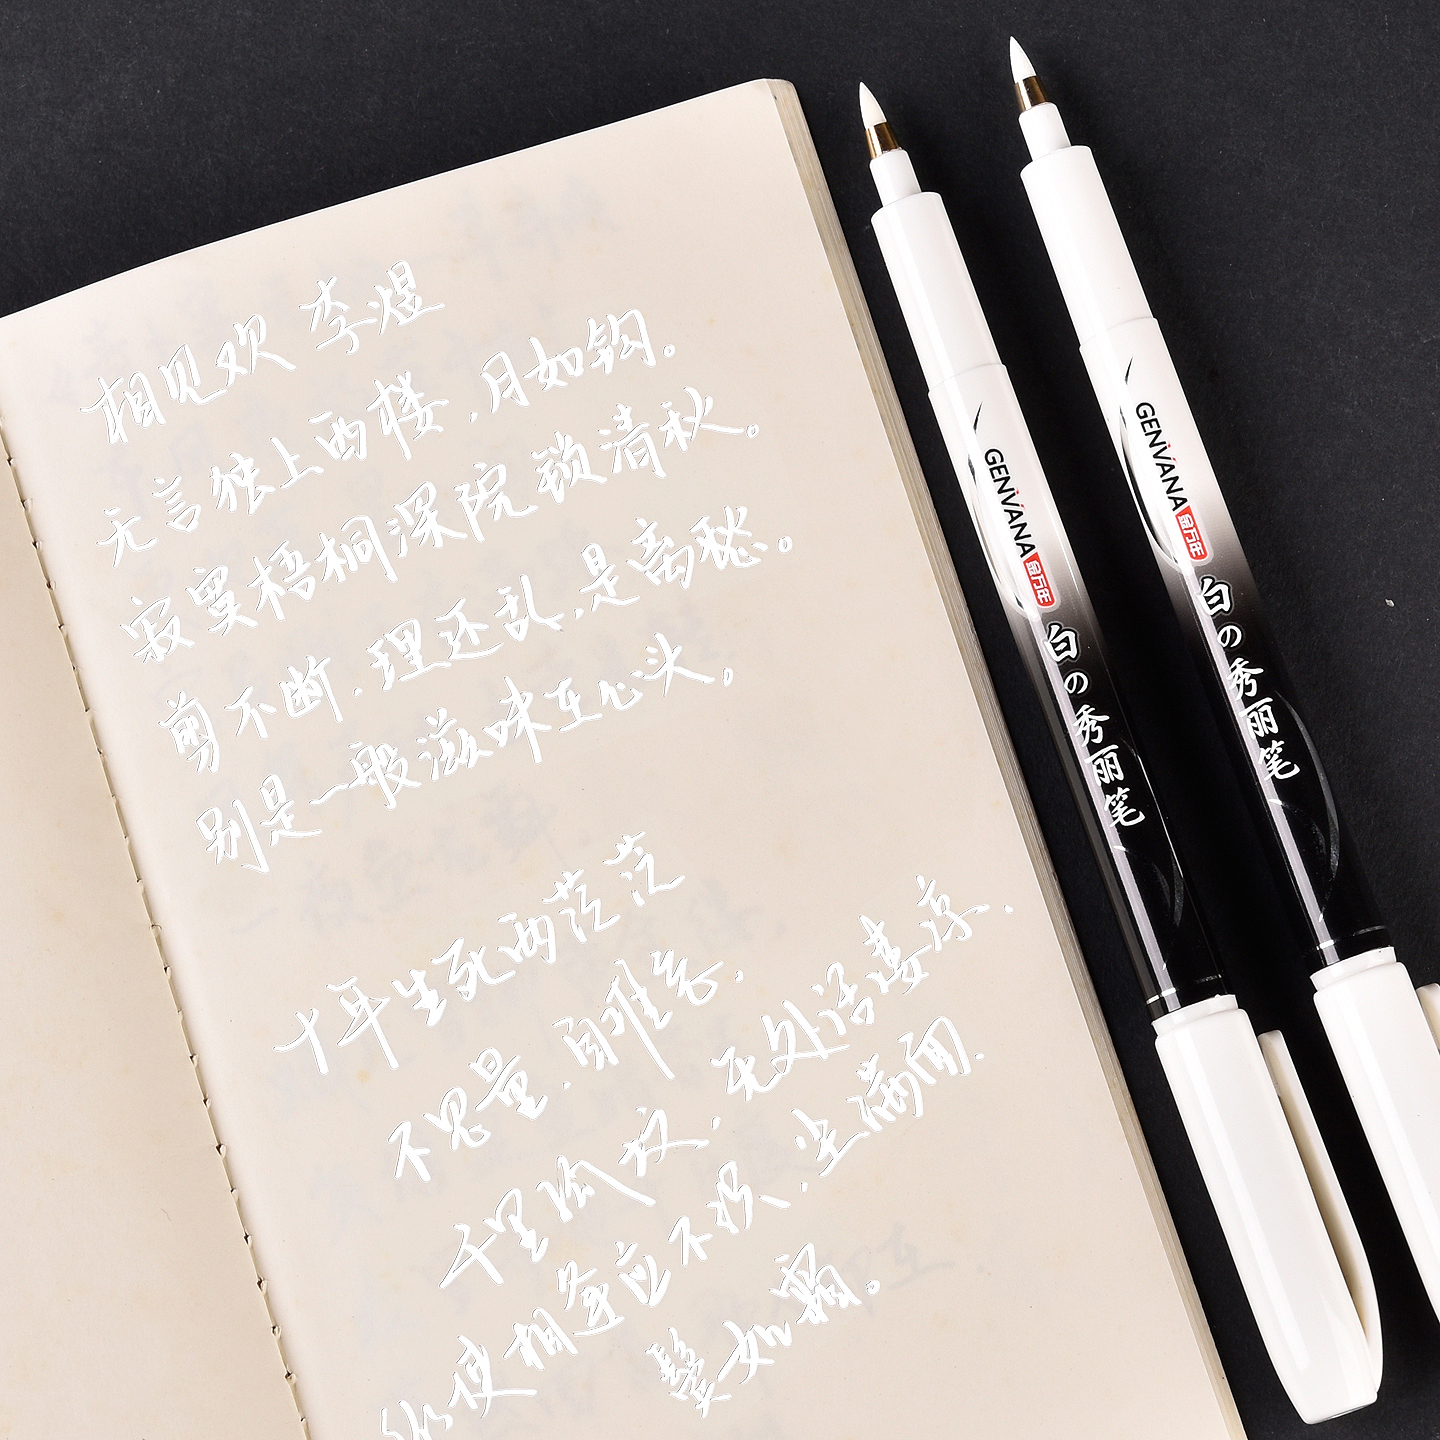 相见欢 李煜
无言独上西楼,月如钩。
寂寞梧桐深院锁清秋。
剪不断,理还乱,是离愁。
别是一般滋味在心头。
十年生死两茫茫
不思量,自难忘,
千里孤坟,无处话凄凉.
纵使相逢应不识,尘满面.
鬓如霜。
GENVANA 金万年
白の秀丽笔
GENVANA 金万年
白の秀丽笔